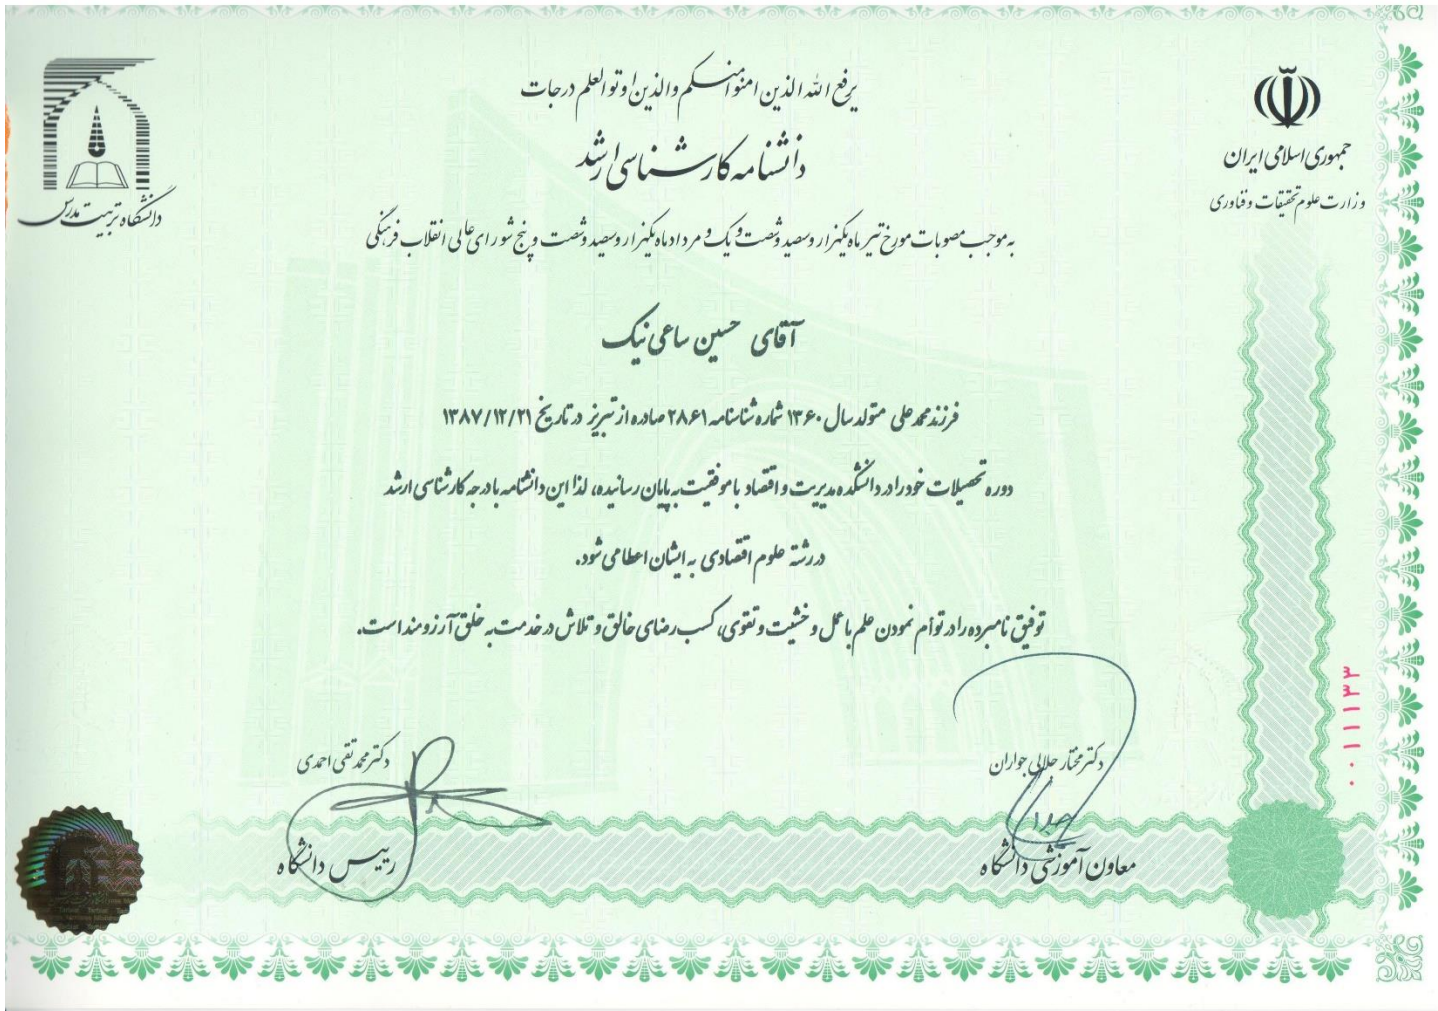 یرفع الله الذین امنوا منکم والذین اوتو العلم درجات
دانشنامه کارشناسی ارشد
جمهوری اسلامی ایران
وزارت علوم تحقیقات و فناوری
دانشگاه تربیت مدرس
به موجب مصوبات مورخ تیر ماه یکهزار و سیصد و شصت و یک و مرداد ماه یکهزار و سیصد و شصت و پنج شورای عالی انقلاب فرهنگی
آقای حسین ساعی نیک
فرزند محمدعلی متولد سال ۱۳۶۰ شماره شناسنامه ۲۸۶۱ صادره از تبریز در تاریخ ۱۳۸۷/۱۲/۲۱
دوره تحصیلات خود را در دانشکده مدیریت و اقتصاد با موفقیت به پایان رسانیده، لذا این دانشنامه با درجه کارشناسی ارشد
در رشته علوم اقتصادی به ایشان اعطا می شود.
توفیق نامبرده را در توأم نمودن علم با عمل و خشیت و تقوی، کسب رضای خالق و تلاش در خدمت به خلق آرزومند است.
دکتر مختار جلالی جواران
معاون آموزشی دانشگاه
دکتر محمد تقی احمدی
رییس دانشگاه
۰۰۱۱۱۳۳